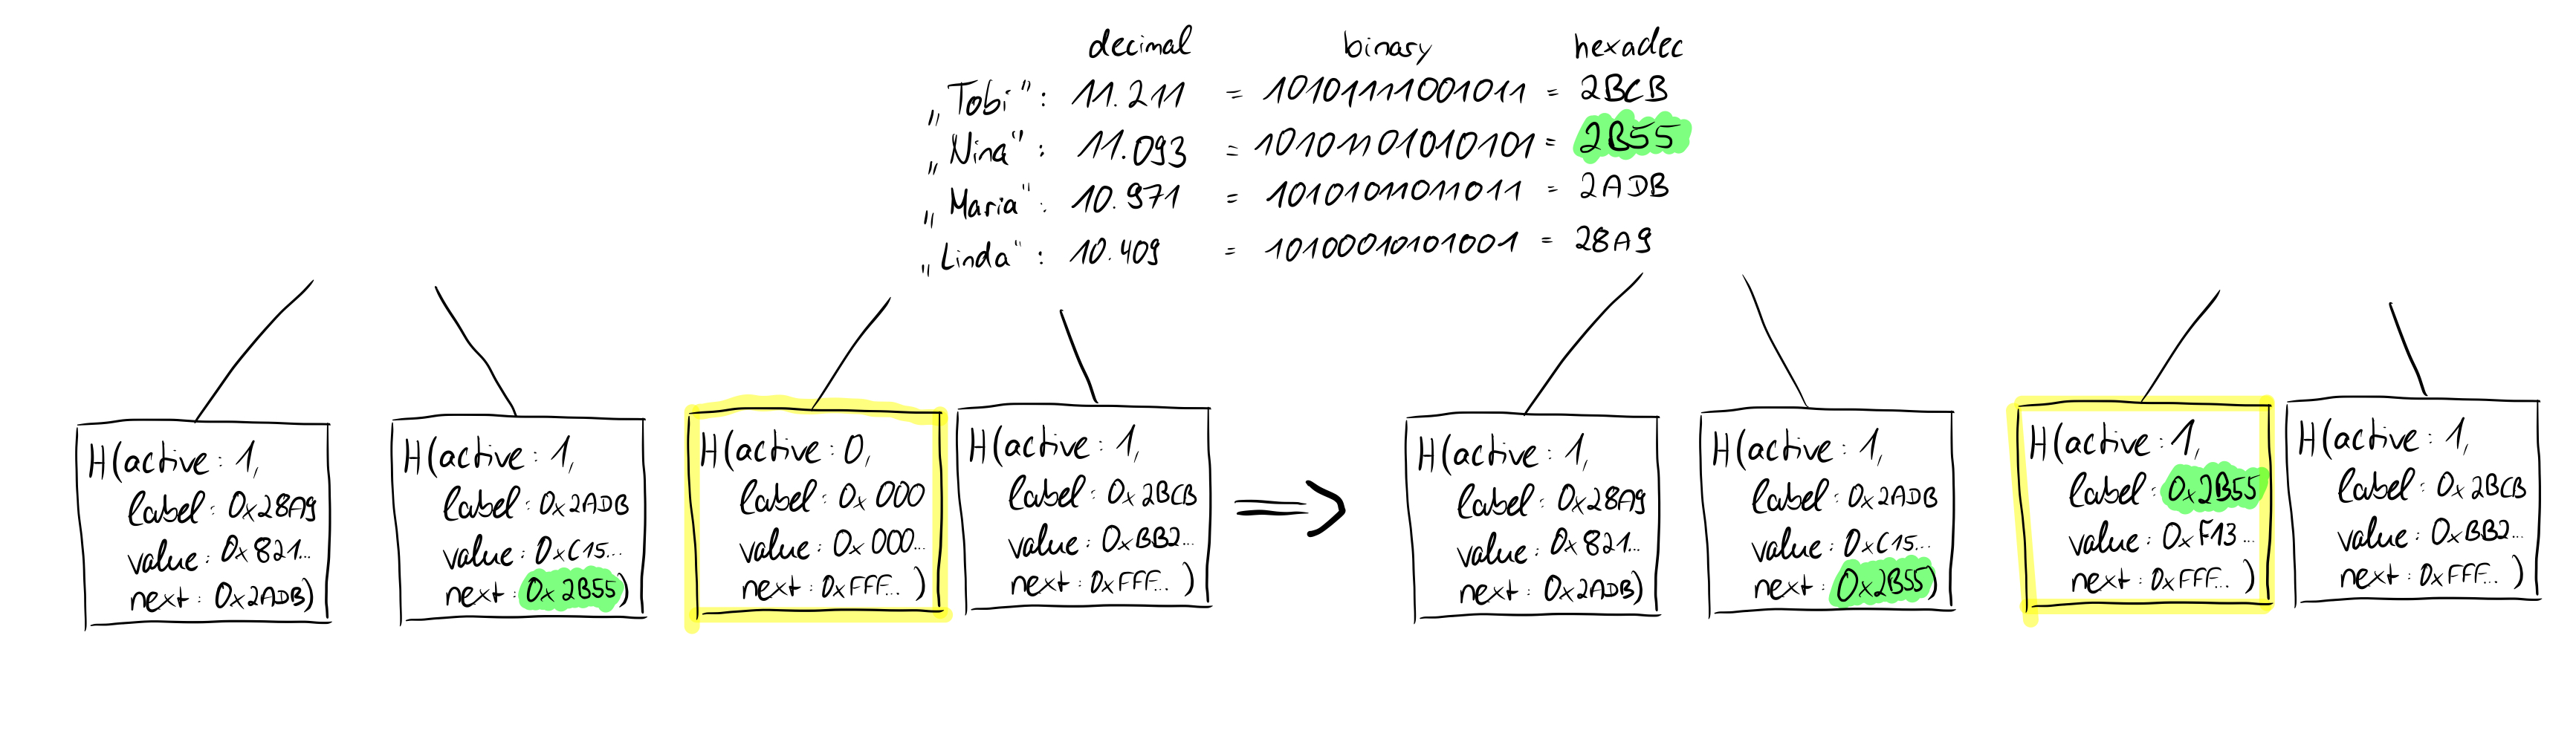 decimal binary hexadec
„Tobi": 11.211 = 10101111001011 = 2BCB
„Nina": 11.093 = 10101101010101 = 2B55
„Maria": 10.971 = 10101011011011 = 2ADB
„Linda": 10.409 = 10100010101001 = 28A9
H(active: 1,
label: 0x28A9
value: 0x821...
next: 0x2ADB)
H(active: 1,
label: 0x2ADB
value: 0xC15...
next: 0x2B55)
H(active: 0,
label: 0x000
value: 0x000...
next: 0xFFF... )
H(active: 1,
label: 0x2BCB
value: 0xBB2...
next: 0xFFF... )
=>
H(active: 1,
label: 0x28A9
value: 0x821...
next: 0x2ADB)
H(active: 1,
label: 0x2ADB
value: 0xC15...
next: 0x2B55)
H(active: 1,
label: 0x2B55
value: 0xF13...
next: 0xFFF... )
H(active: 1,
label: 0x2BCB
value: 0xBB2...
next: 0xFFF... )